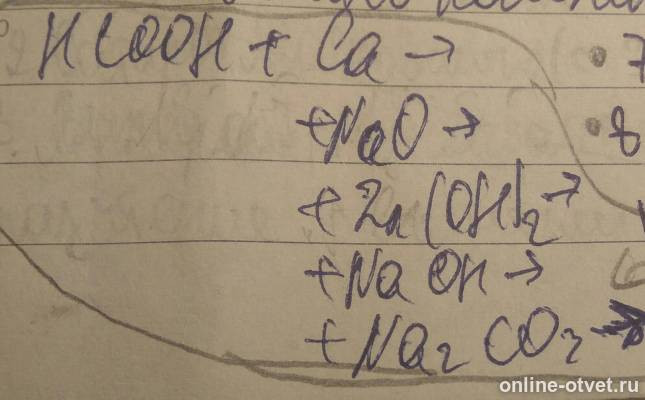 HCOOH + Ca →
• 7
+ NaO →
• 8
+ Zn(OH)₂ →
+ NaOH →
+ Na₂CO₃ →
online-otvet.ru